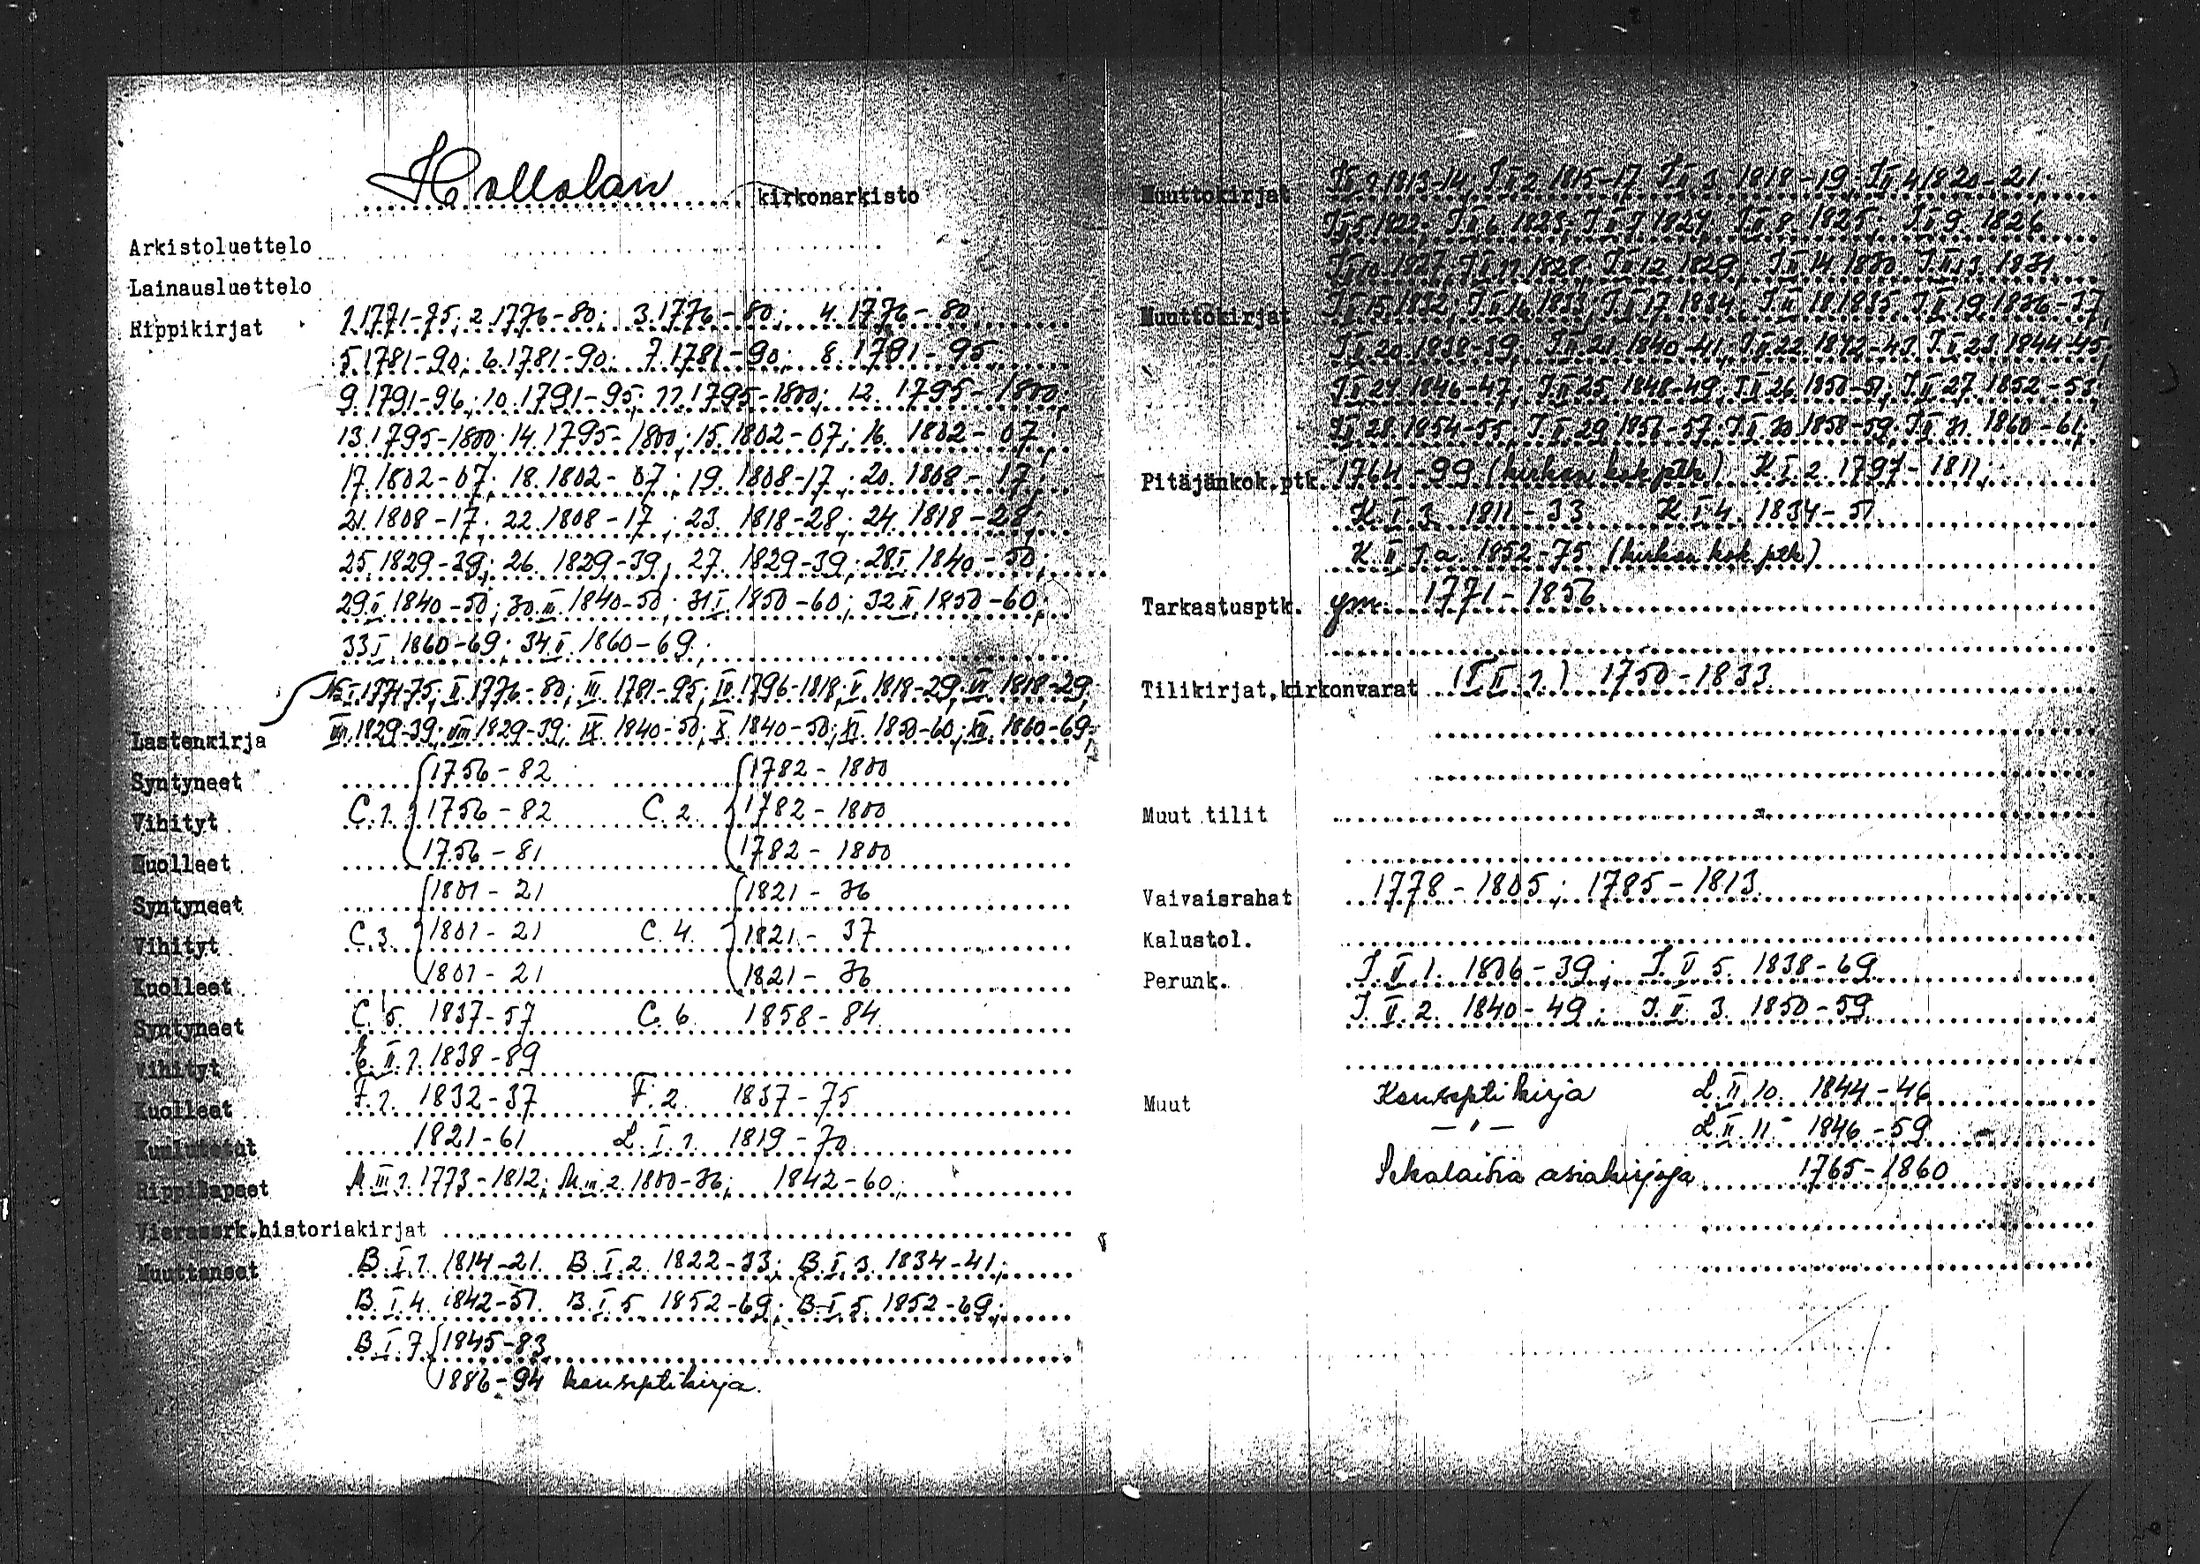 Hollolan kirkonarkisto
Arkistoluettelo
Lainausluettelo
Rippikirjat 1.1771-75; 2.1776-80; 3.1776-80; 4.1776-80
5.1781-90; 6.1781-90; 7.1781-90; 8.1791-95
9.1791-96; 10.1791-95; 11.1795-1800; 12.1795-1800;
13.1795-1800; 14.1795-1800; 15.1802-07; 16.1802-07
17.1802-07; 18.1802-07; 19.1808-17; 20.1808-17;
21.1808-17; 22.1808-17; 23.1818-28; 24.1818-28;
25.1829-39; 26.1829-39; 27.1829-39; 28.I.1840-50;
29.II.1840-50; 30.III.1840-50; 31.I.1850-60; 32.II.1850-60;
33.I.1860-69; 34.II.1860-69;
I.1771-75; II.1776-80; III.1781-95; IV.1796-1818; V.1818-29; VI.1818-29;
Lastenkirja VII.1829-39; VIII.1829-39; IX.1840-50; X.1840-50; XI.1850-60; XII.1860-69;
Syntyneet 1756-82 1782-1800
Vihityt C.1. 1756-82 C.2. 1782-1800
Kuolleet 1756-81 1782-1800
Syntyneet 1801-21 1821-36
Vihityt C.3. 1801-21 C.4. 1821-37
Kuolleet 1801-21 1821-36
Syntyneet C.5. 1837-57 C.6. 1858-84
Vihityt E.II.1.1838-89
Kuolleet F.1. 1832-37 F.2. 1837-75
Kuulutetut 1821-61 L.I.1. 1819-70
Rippilapset M.III.1.1773-1812; M.III.2.1800-36; 1842-60;
Vierassrk.historiakirjat
Muuttaneet B.I.1.1814-21. B.I.2.1822-33; B.I.3.1834-41;
B.I.4.1842-51. B.I.5.1852-69; B.I.5.1852-69;
B.I.7. 1845-83
1886-94 konseptikirja.
Muuttokirjat I II 1 1813-14; I II 2 1815-17 I II 3 1818-19; I II 4 1820-21;
I II 5 1822; I II 6 1823; I II 7 1824 I II 8 1825; I II 9 1826
I II 10 1827; I II 11 1828; I II 12 1829; I II 14 1830 I II 13 1831
Muuttokirjat I II 15 1832; I II 16 1833; I II 17 1834; I II 18 1835; I II 19 1836-37;
I II 20 1838-39; I II 21 1840-41; I II 22 1842-43 I II 23 1844-45;
I II 24 1846-47; I II 25 1848-49; I II 26 1850-51; I II 27 1852-53;
I II 28 1854-55; I II 29 1856-57; I II 30 1858-59; I II 31 1860-61;
Pitäjänkok.ptk. 1764-99 (kirkon kok ptk) K I 2. 1797-1811;
K I 3. 1811-33 K I 4. 1834-51
K II 1.a. 1852-75 (kirkon kok ptk)
Tarkastusptk. ym. 1771-1856
Tilikirjat,kirkonvarat 1750-1833
Muut tilit
Vaivaisrahat 1778-1805; 1785-1813
Kalustol.
Perunk. I.II.1. 1806-39; I.II.5. 1838-69
I.II.2. 1840-49; I.II.3. 1850-59
Muut Konseptikirja L.II.10. 1844-46
-"- L.II.11 1846-59
Sekalaisia asiakirjoja 1765-1860